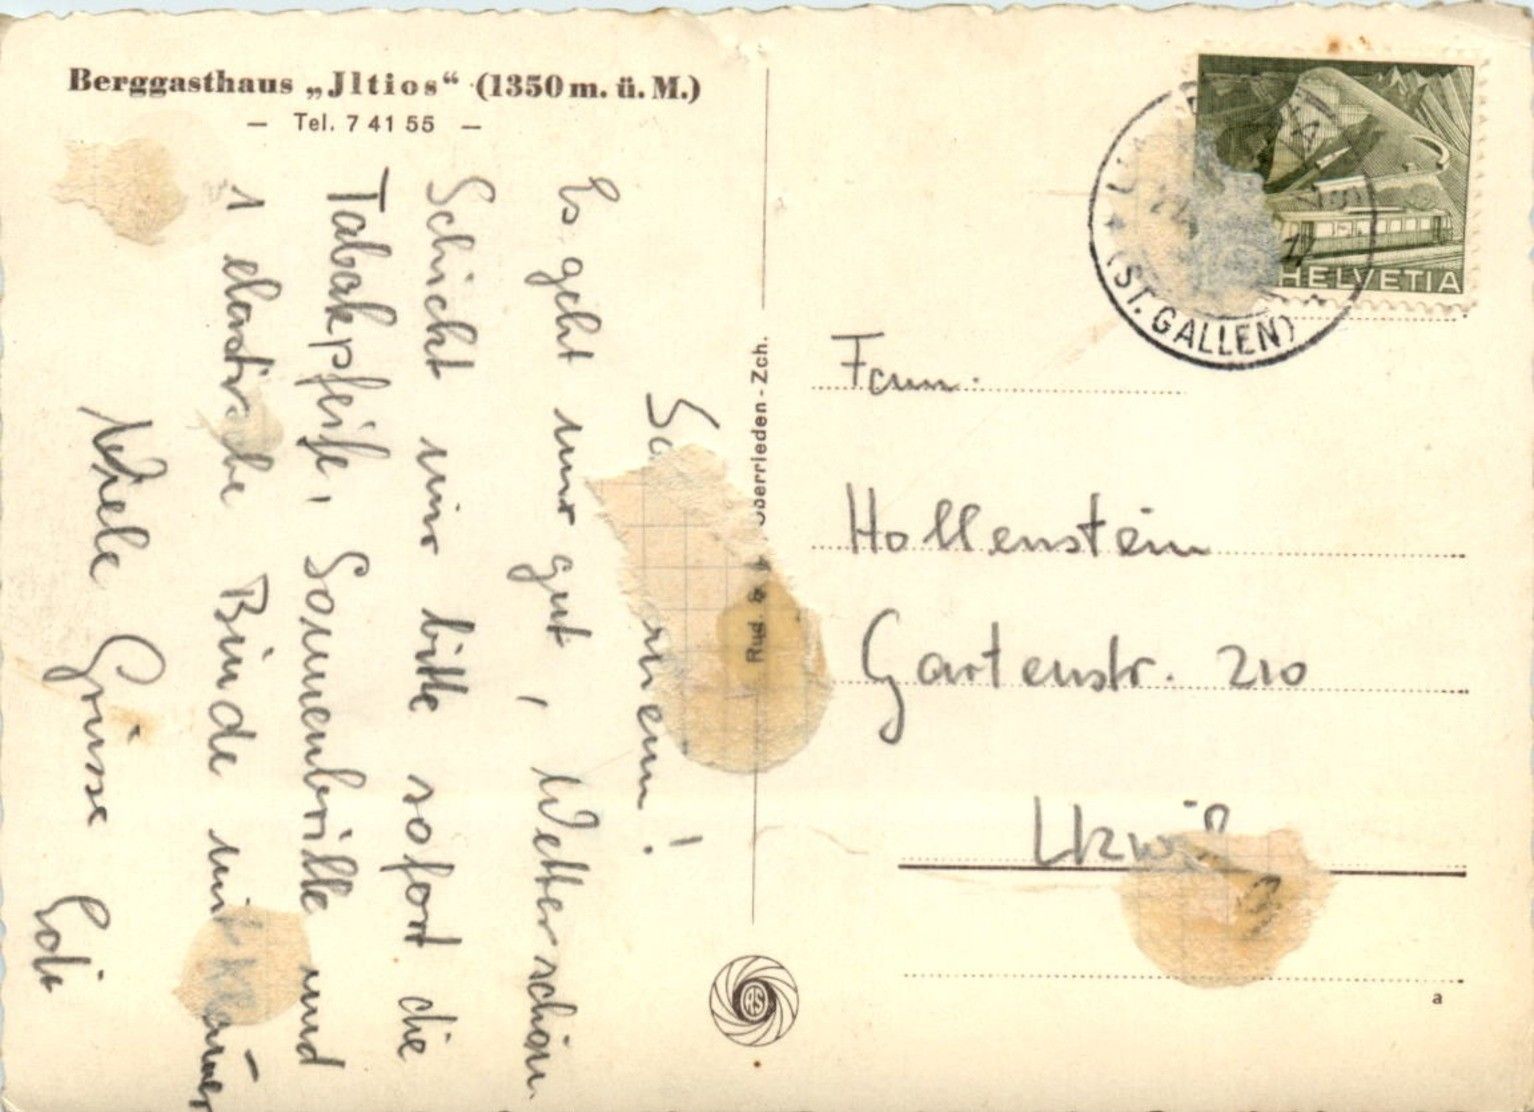 Berggasthaus „Jltios“ (1350 m. ü. M.)
— Tel. 7 41 55 —
Es geht mir gut, Wetter schön.
Schickt mir bitte sofort die
Tabakpfeife, Sonnenbrille und
1 elastische Binde mit
Viele Grüsse Edi
Rud. & Oberrieden - Zch.
HELVETIA
(ST. GALLEN)
Fam.
Hollenstein
Gartenstr. 210
RS
a